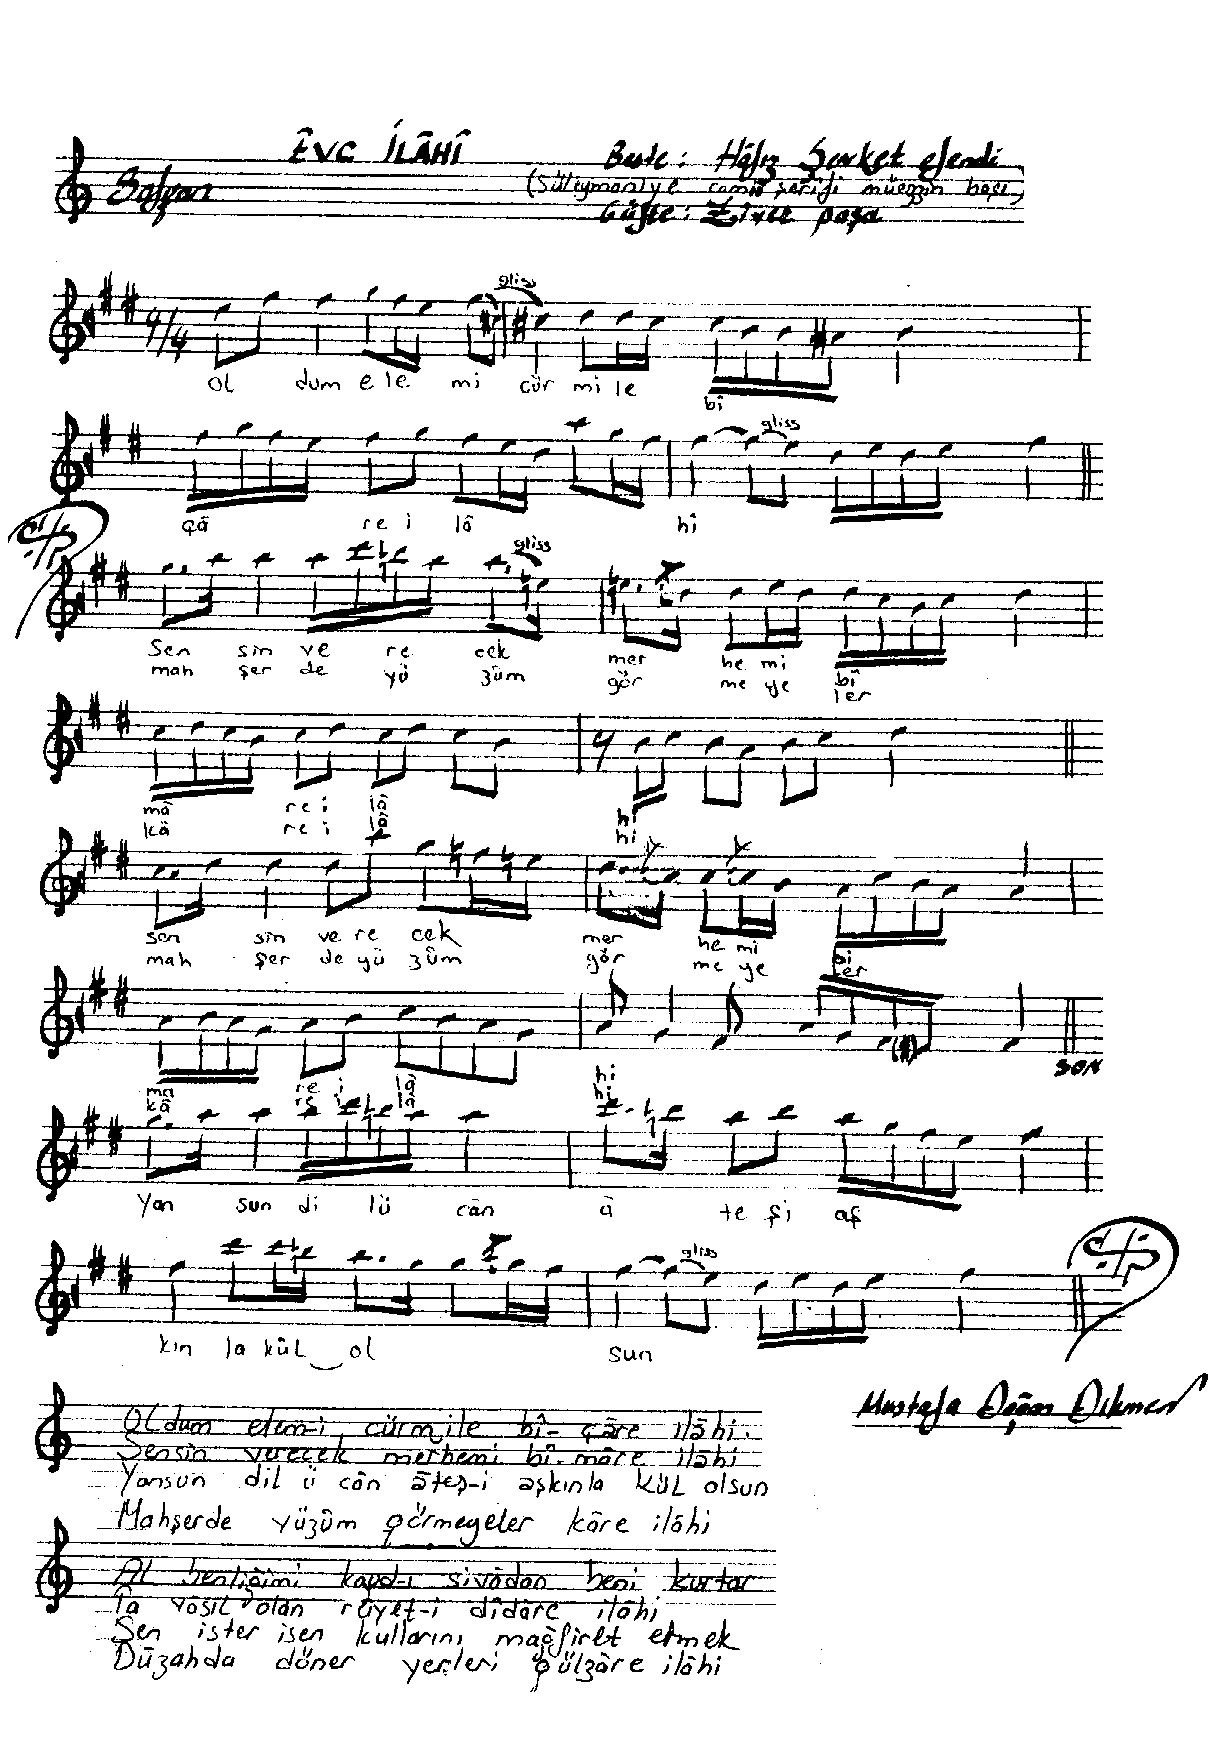 Êvc İLÂHÎ
Sofyan
Beste: Hâfız Şevket efendi
(Süleymaniye camiî şerifi müezzin başı)
Güfte: Ziver paşa
gliss
9/4
OL dum e le mi cür mi le bî
gliss
çâ re i lâ hî
gliss
Sen sin ve re cek mer he mi bî
mah şer de yü züm gör me ye ler
mâ re i lâ hî
kâ re i lâ hi
sen sin ve re cek mer he mi bi
mah şer de yü züm gör me ye ler
SON
ma re i lâ hi
kâ re i lâ hi
Yan sun di lü cân â te şi aş
gliss
kın la kül ol sun
Mustafa Doğan Dikmen
OLdum elem-i cürmile bî-çâre ilâhi.
Sensin verecek merhemi bî-mâre ilâhi
Yansun dil ü cân âteş-i aşkınla kül olsun
Mahşerde yüzüm görmeyeler kâre ilâhi
Al benliğimi kayd-ı sivâdan beni kurtar
Ta vâsıl olan rüyet-i dîdâre ilâhi
Sen ister isen kullarını mağfiret etmek
Dûzahda döner yerleri gülzâre ilâhi